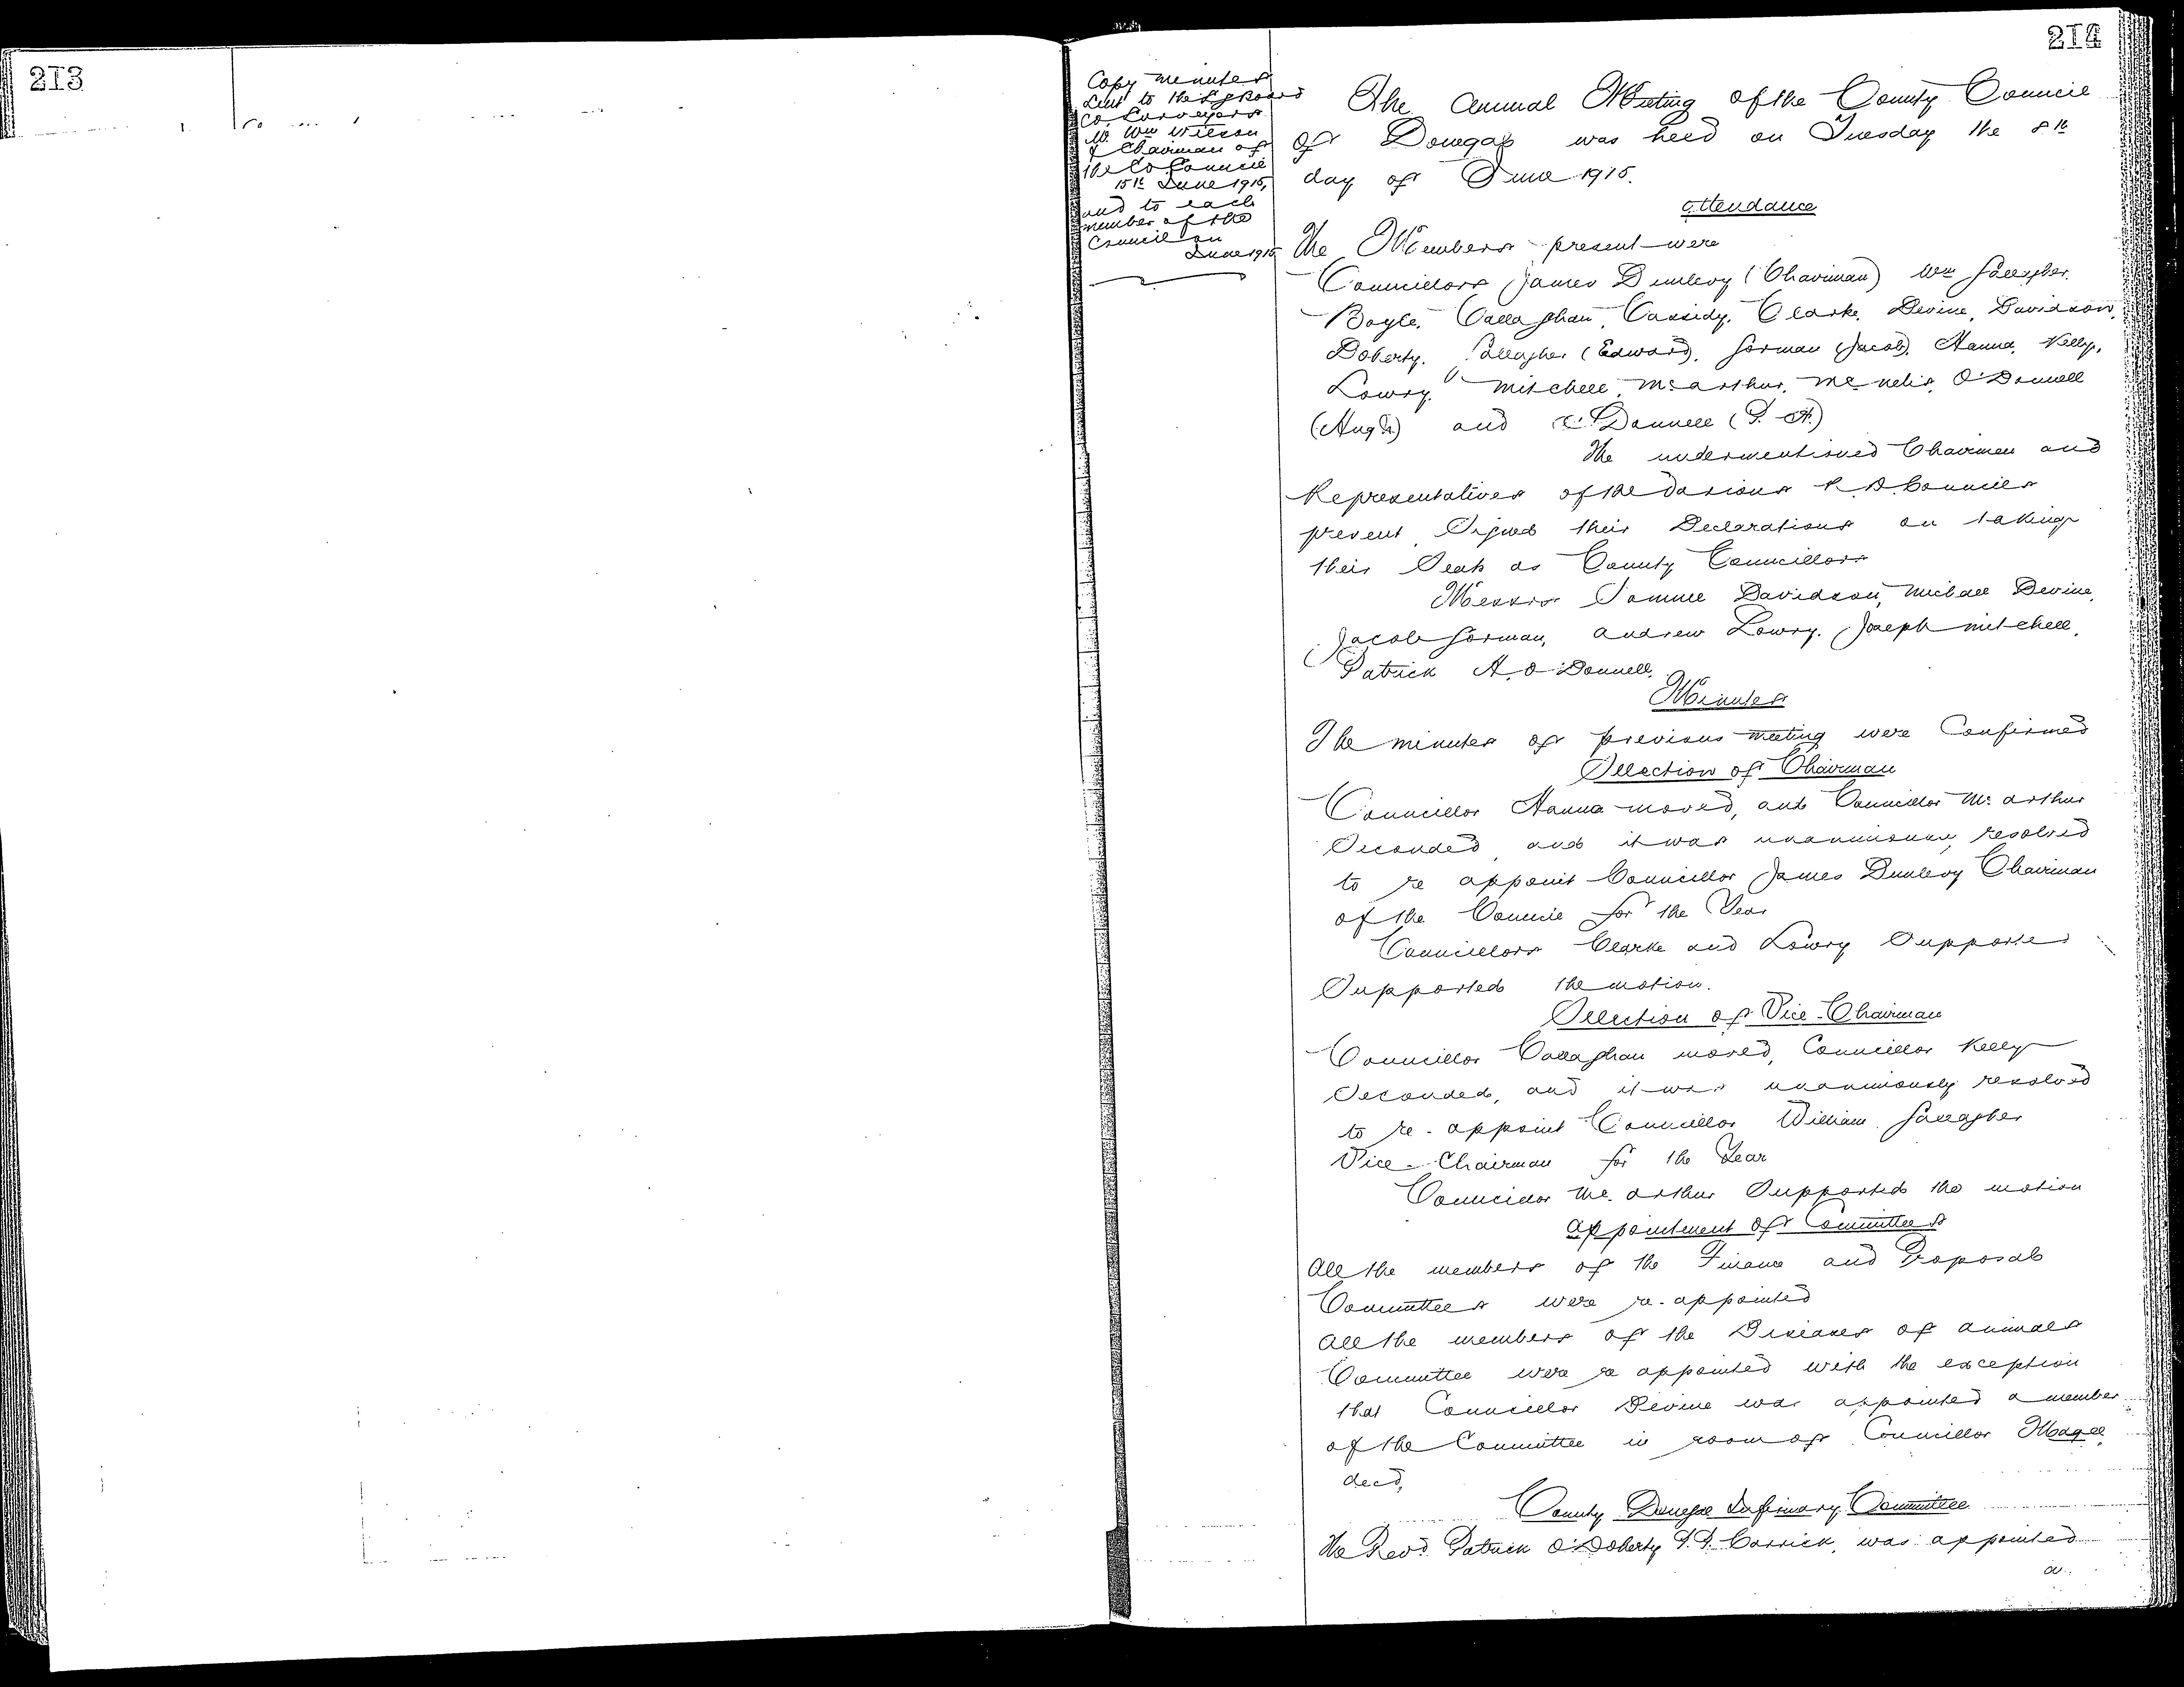 213
214
Copy minutes
Sent to the L G Board
Co Surveyors
Mr Wm Wilson
& Chairman of
the Co Council
15th June 1915,
and to each
member of the
Council on
June 1915
The Annual Meeting of the County Council
of Donegal was held on Tuesday the 8th
day of June 1915.
Attendance
The Members present were
Councillors James Dunlevy (Chairman) Wm Gallagher,
Boyle, Callaghan, Cassidy, Clarke, Devine, Davidson,
Doherty, Gallagher (Edward), Gorman (Jacob), Hanna, Kelly,
Lowry, Mitchell, McArthur, McNelis, O'Donnell
(Hugh) and O'Donnell (P. A.)
The undermentioned Chairmen and
Representatives of the various R. D. Councils
present, Signed their Declarations on taking
their Seats as County Councillors
Messrs Samuel Davidson, Michael Devine,
Jacob Gorman, Andrew Lowry, Joseph Mitchell,
Patrick A. O'Donnell.
Minutes
The minutes of previous meeting were Confirmed
Election of Chairman
Councillor Hanna moved, and Councillor McArthur
Seconded and it was unanimously resolved
to re appoint Councillor James Dunlevy Chairman
of the Council for the Year
Councillors Clarke and Lowry Supported
Supported the motion.
Election of Vice-Chairman
Councillor Callaghan moved, Councillor Kelly
Seconded, and it was unanimously resolved
to re-appoint Councillor William Gallagher
Vice-Chairman for the Year
Councillor McArthur Supported the motion
Appointment of Committees
All the members of the Finance and Proposals
Committees were re-appointed
All the members of the Diseases of Animals
Committee were re appointed with the exception
that Councillor Devine was appointed a member
of the Committee in room of Councillor Magee
decd,
County Donegal Infirmary Committee
The Revd. Patrick O'Doherty P.P. Carrick, was appointed
a